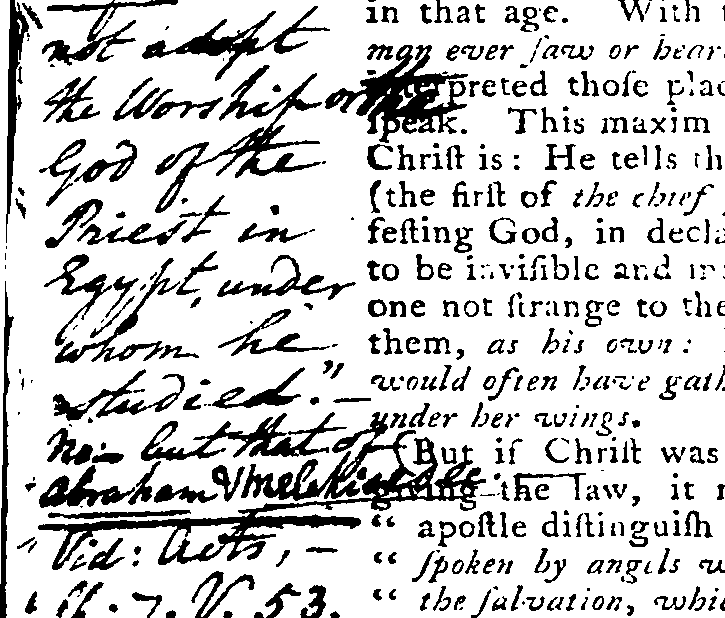 not adopt
the Worship or the
God of the
Priest in
Egypt, under
whom he
studied."—
No: but that of
Abraham & Melchizedec.
Vid: Acts, —
Ch. 7. V. 53.
in that age. With
man ever ſaw or hear
interpreted thoſe plac
ſpeak. This maxim
Chriſt is: He tells th
(the firſt of the chief
feſting God, in decla
to be inviſible and
one not ſtrange to the
them, as his own:
would often have gath
under her wings.
(But if Chriſt was
giving the law, it
“ apoſtle diſtinguiſh
“ ſpoken by angels w
“ the ſalvation, whic